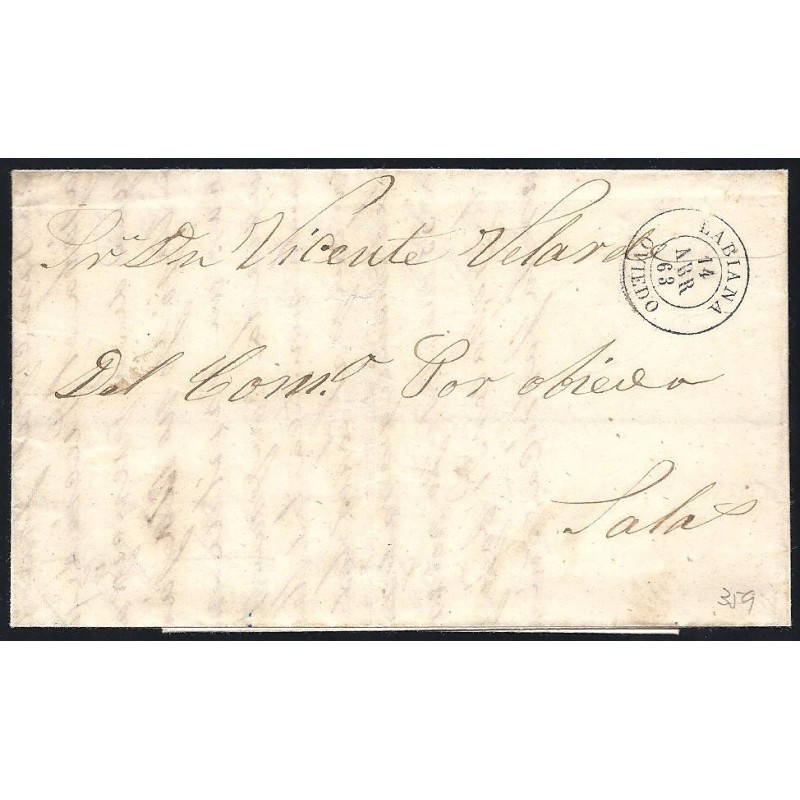 Sr. Dn Vicente Velarde
LABIANA
14
ABR
63
OVIEDO
Del Com.o Por obiedo
Salas
359